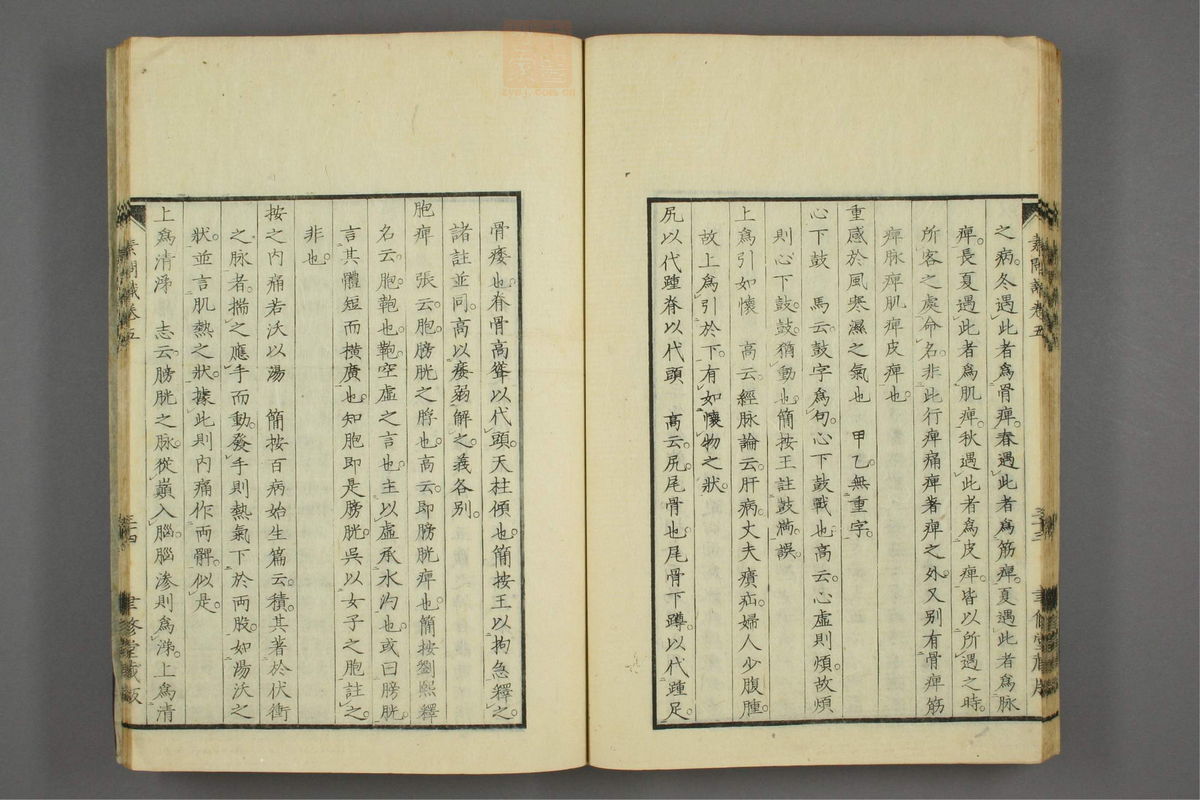 之病。冬遇此者爲骨痺。春遇此者爲筋痺。夏遇此者爲脉
痺。長夏遇此者爲肌痺。秋遇此者爲皮痺。皆以所遇之時。
所客之處命名。非此行痺痛痺著痺之外又別有骨痺筋
痺脉痺肌痺皮痺也。
重感於風寒濕之氣也 甲乙無重字。
心下鼓 馬云。鼓字爲句。心下鼓戰也。高云。心虛則煩。故煩
則心下鼓。鼓猶動也。簡按王註鼓滿。誤。
上爲引如懷 高云。經脉論云。肝病。丈夫㿉疝。婦人少腹腫。
故上爲引於下。有如懷物之狀。
尻以代踵脊以代頭 高云。尻。尾骨也。尾骨下蹲。以代踵。足
骨痿也。脊骨高聳。以代頭。天柱傾也。簡按王以拘急釋之。
諸註並同。高以痿弱解之。義各別。
胞痺 張云。胞。膀胱之脬也。高云。即膀胱痺也。簡按劉熙釋
名云。胞。鞄也。鞄。空虛之言也。主以虛承水汋也。或曰膀胱。
言其體短而橫廣也。知胞即是膀胱。吳以女子之胞註之。
非也。
按之內痛若沃以湯 簡按百病始生篇云。積其著於伏衝
之脉者。揣之應手而動。發手則熱氣下於兩股。如湯沃之
狀。並言肌熱之狀。據此則內痛作兩髀。似是。
上爲清涕 志云。膀胱之脉。從巔入腦。腦滲則爲涕。上爲清
素問識卷五
三十四
聿修堂藏版